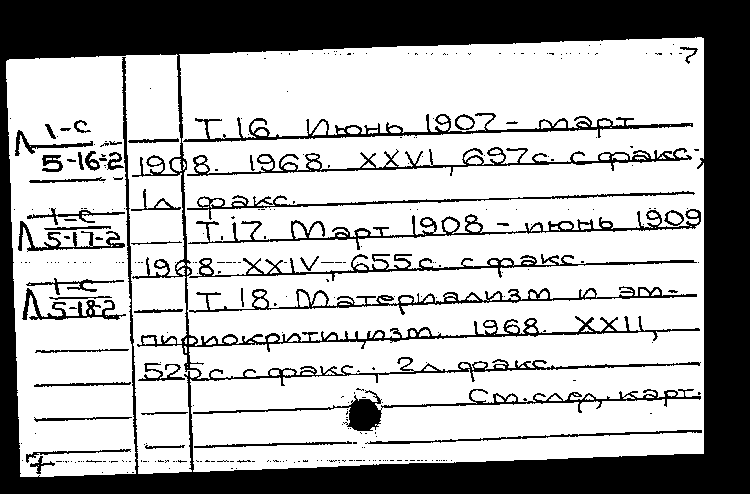 7
Т. 16. Июнь 1907 - март
1908. 1968. XXVI, 697с. с факс.,
1л факс.
Т. 17. Март 1908 - июнь 1909
1968. XXIV, 655с. с факс.
Т. 18. Материализм и эм-
пириокритицизм. 1968. XXII,
525с с факс., 2л факс.
См. след. карт.
Л 1-С
5-16-2
Л 1-С
5-17-2
Л 1-С
5-18-2
7